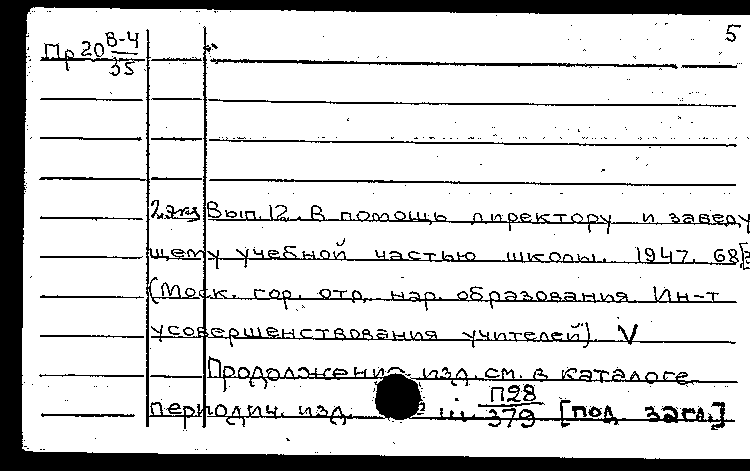 5
Пр 20 В-4
35
2 экз Вып. 12. В помощь директору и заведу
щему учебной частью школы. 1947. 68
(Моск. гор. отд. нар. образования. Ин-т
усовершенствования учителей). V
Продолжение изд. см. в каталоге
периодич. изд. П28
379 [под загл.]